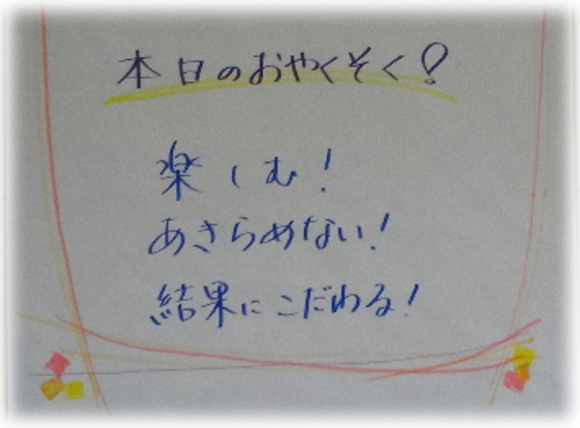 本日のおやくそく！
楽しむ！
あきらめない！
結果にこだわる！